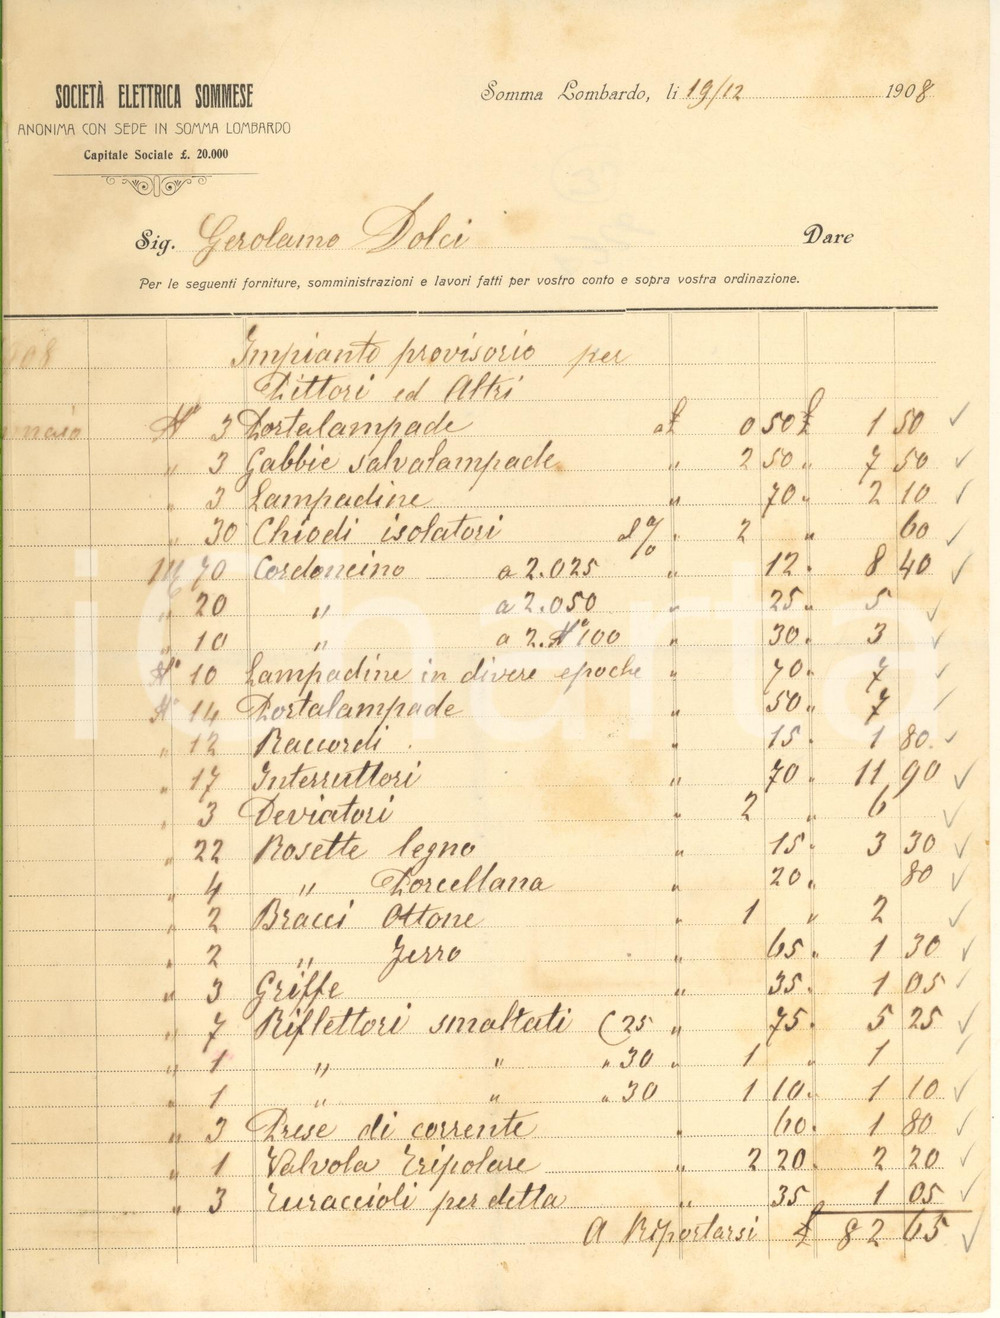 SOCIETÀ ELETTRICA SOMMESE
ANONIMA CON SEDE IN SOMMA LOMBARDO
Capitale Sociale £. 20.000
Somma Lombardo, li 19/12 1908
Sig. Gerolamo Dolci Dare
Per le seguenti forniture, somministrazioni e lavori fatti per vostro conto e sopra vostra ordinazione.
908 Impianto provisorio per
Pittori ed Altri
N° 3 Portalampade a £ 0 50 £ 1 50
" 3 Gabbie salvalampade " 2 50 " 7 50
" 3 Lampadine " 70 " 2 10
" 30 Chiodi isolatori il % " 2 " 60
M 70 Cordoncino a 2.025 " 12 " 8 40
" 20 " a 2.050 " 25 " 5
" 10 " a 2.N°100 " 30 " 3
N° 10 Lampadine in divere epoche " 70 " 7
N° 14 Portalampade " 50 " 7
" 12 Raccordi " 15 " 1 80
" 17 Interruttori " 70 " 11 90
" 3 Deviatori " 2 " 6
" 22 Rosette legno " 15 " 3 30
" 4 " Porcellana " 20 " 80
" 2 Bracci Ottone " 1 " 2
" 2 " Ferro " 65 " 1 30
" 3 Griffe " 35 " 1 05
" 7 Riflettori smaltati ( 25 " 75 " 5 25
" 1 " " " 30 " 1 " 1
" 1 " " " 30 1 10 " 1 10
" 3 Prese di corrente " 60 " 1 80
" 1 Valvola Tripolare " 2 20 " 2 20
" 3 Turaccioli per detta " 35 1 05
A Riportarsi £ 82 65
iCharta